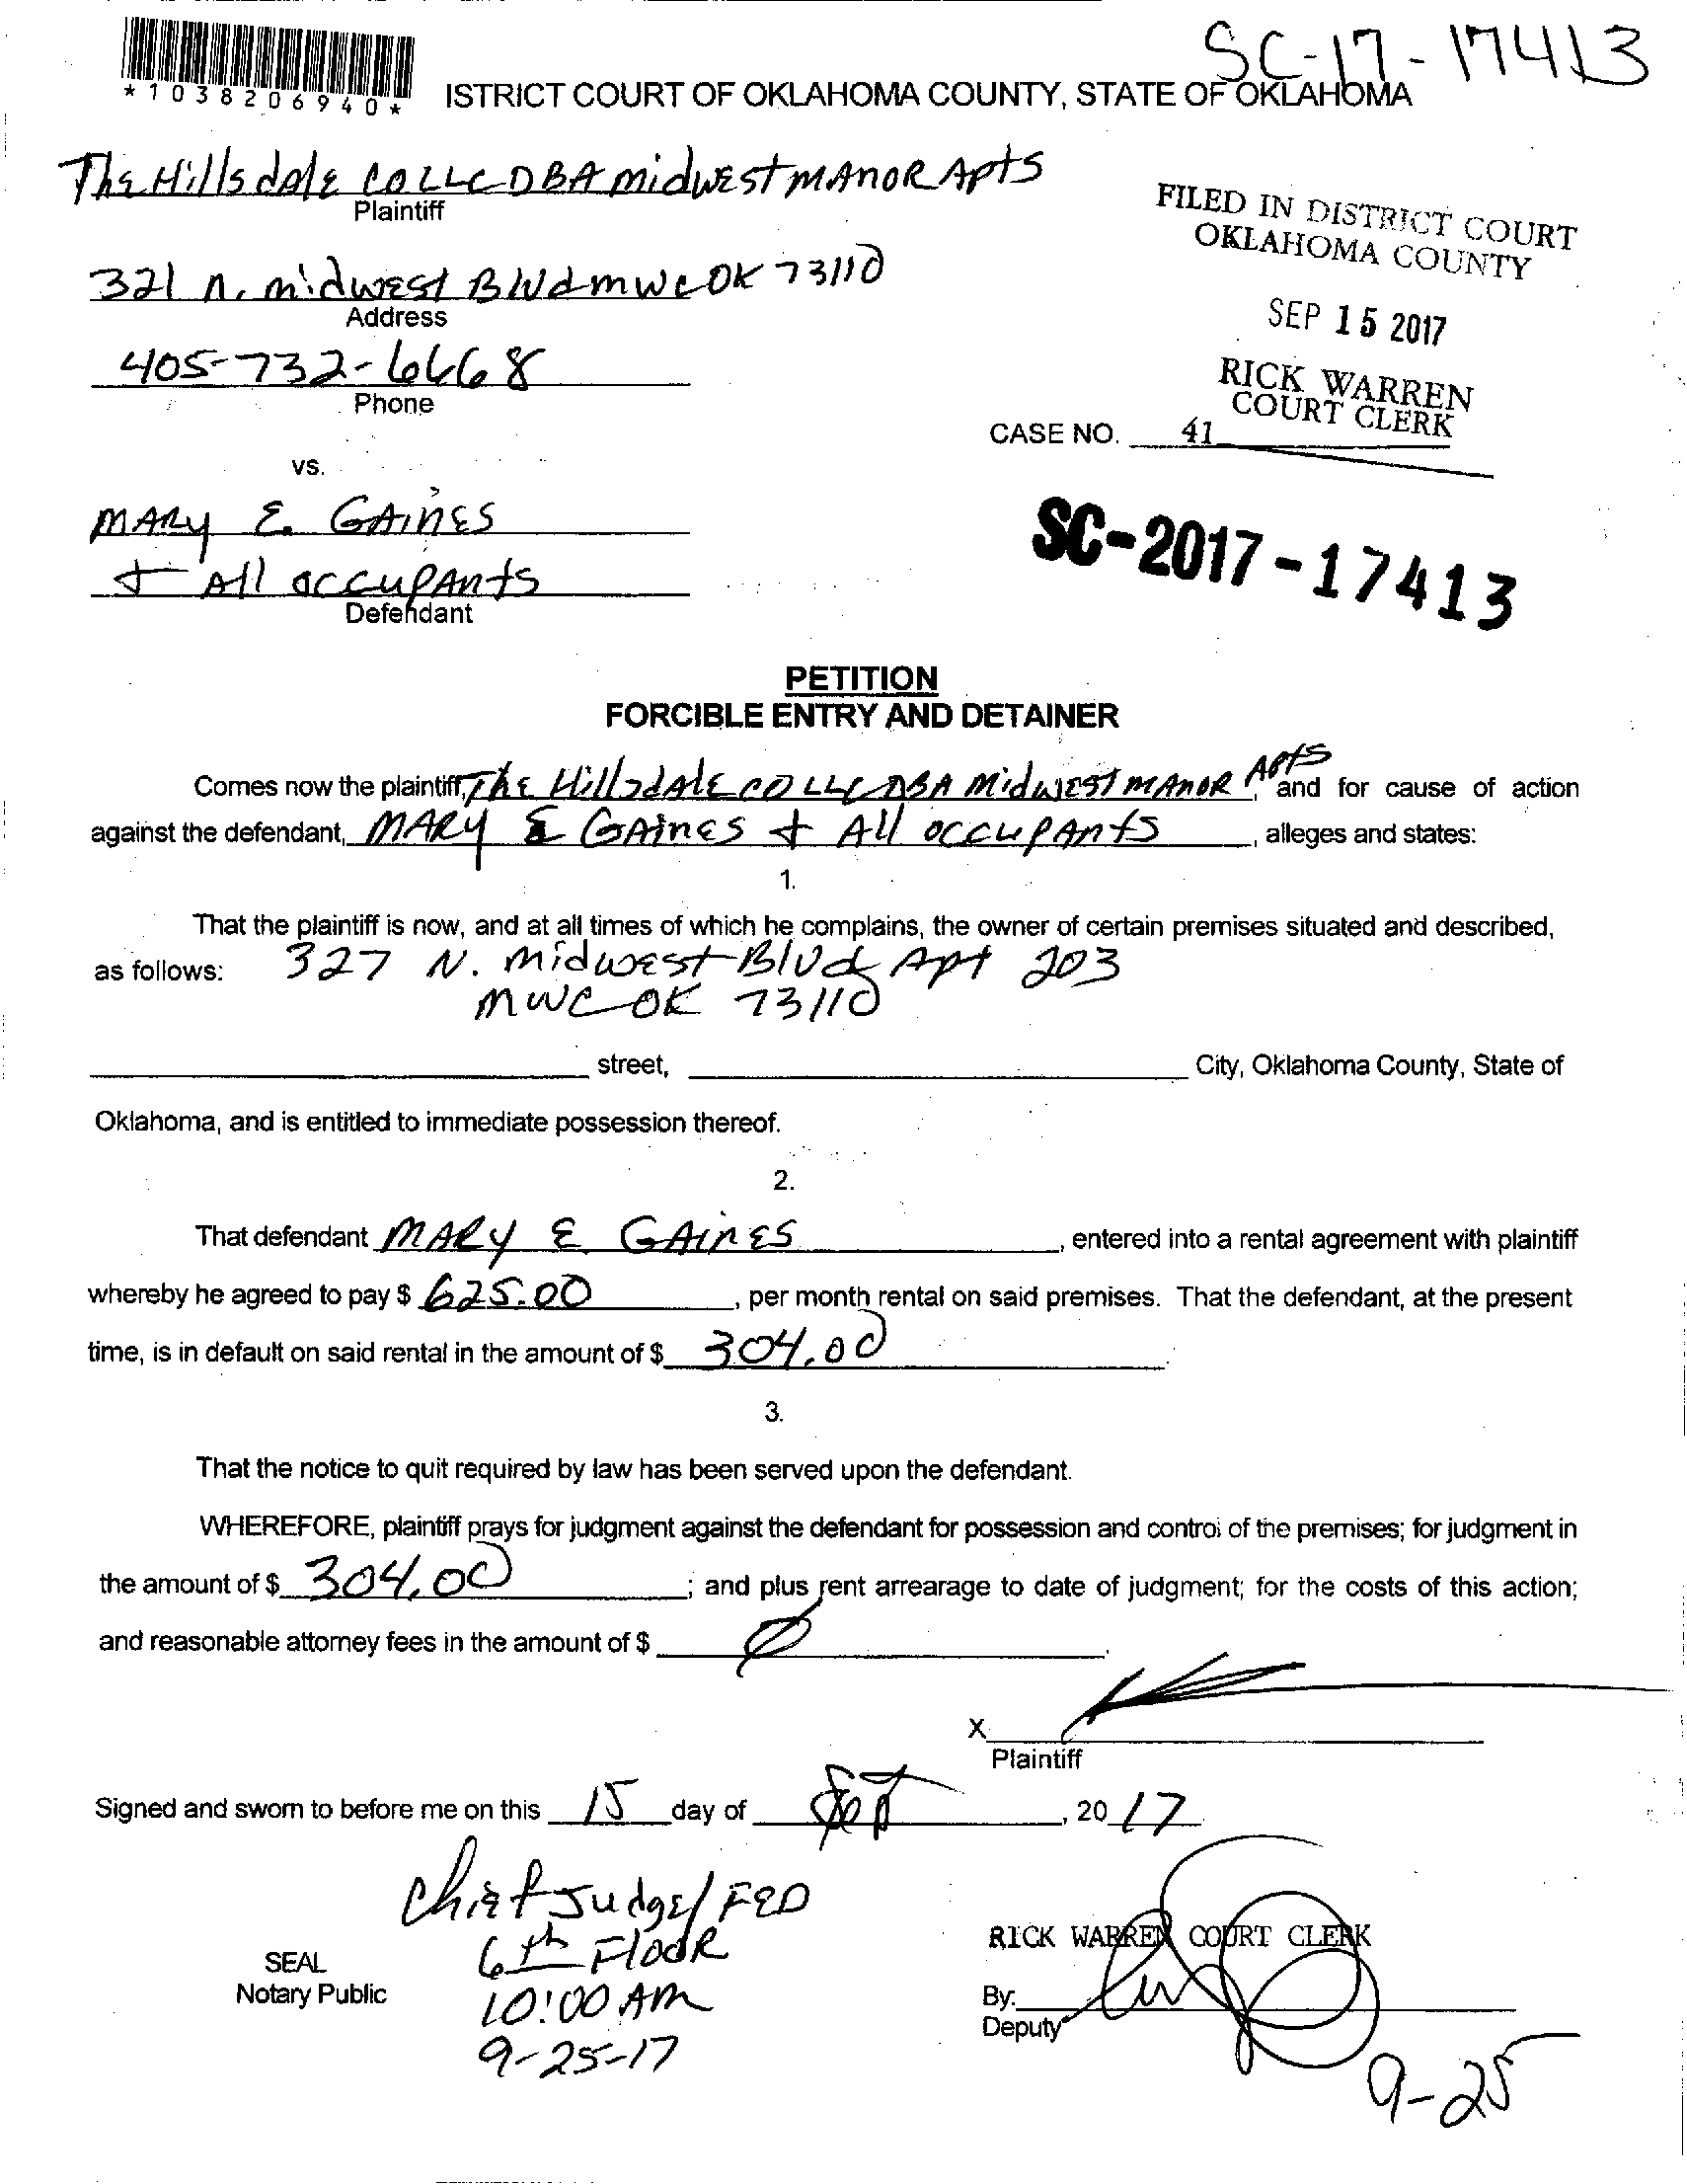 SC-17-17413
*1038206940*
ISTRICT COURT OF OKLAHOMA COUNTY, STATE OF OKLAHOMA
The Hillsdale CO LLC DBA midwest MANOR Apts
Plaintiff
FILED IN DISTRICT COURT
OKLAHOMA COUNTY
321 N. midwest Blvd mwc OK 73110
Address
SEP 15 2017
405-732-6668
Phone
RICK WARREN
COURT CLERK
CASE NO. 41
vs.
MARY E. GAINES
+ All occupants
Defendant
SC-2017-17413
PETITION
FORCIBLE ENTRY AND DETAINER
Comes now the plaintiff, The Hillsdale CO LLC DBA Midwest MANOR Apts, and for cause of action
against the defendant, MARY E GAINES + All occupants, alleges and states:
1.
That the plaintiff is now, and at all times of which he complains, the owner of certain premises situated and described,
as follows: 327 N. midwest Blvd Apt 203
MWC OK 73110
street, City, Oklahoma County, State of
Oklahoma, and is entitled to immediate possession thereof.
2.
That defendant MARY E GAINES, entered into a rental agreement with plaintiff
whereby he agreed to pay $ 625.00, per month rental on said premises. That the defendant, at the present
time, is in default on said rental in the amount of $ 304.00
3.
That the notice to quit required by law has been served upon the defendant.
WHEREFORE, plaintiff prays for judgment against the defendant for possession and control of the premises; for judgment in
the amount of $ 304.00; and plus rent arrearage to date of judgment; for the costs of this action;
and reasonable attorney fees in the amount of $ Ø.
X
Plaintiff
Signed and sworn to before me on this 15 day of Sept, 20 17
Chief Judge/FED
6th Floor
10:00 AM
9-25-17
SEAL
Notary Public
RICK WARREN COURT CLERK
By:
Deputy
9-25